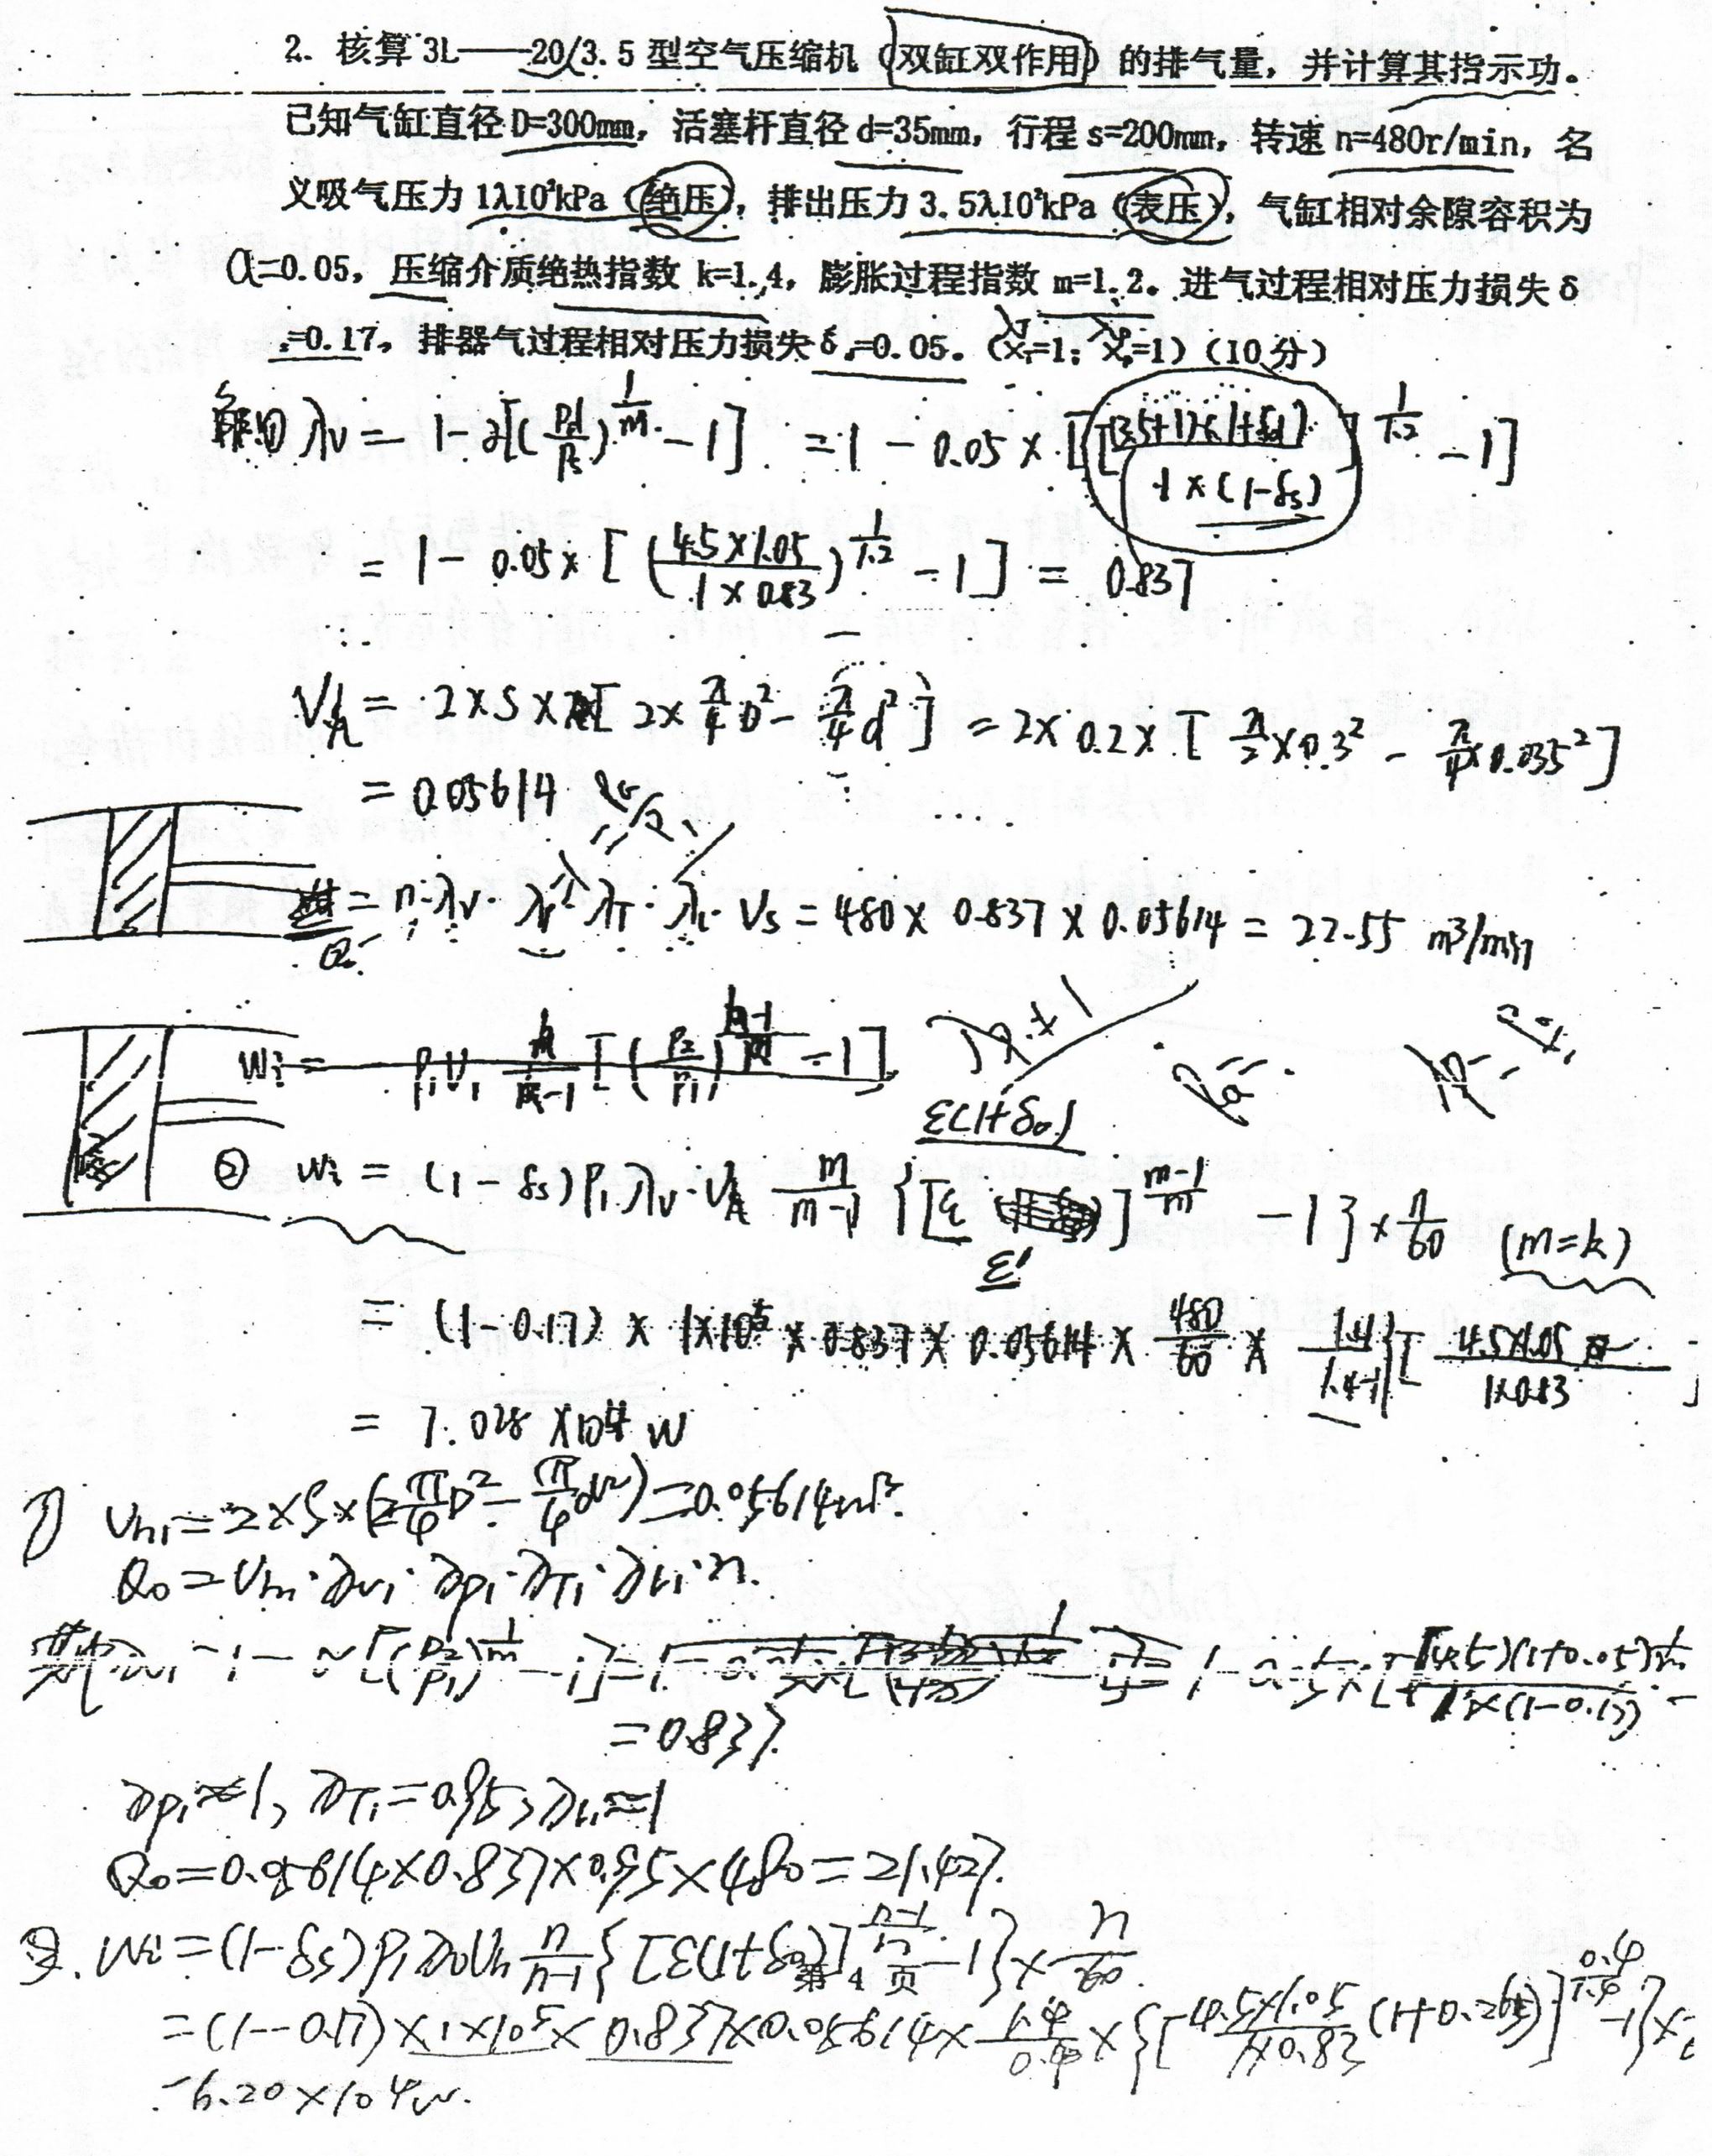 2. 核算 3L——20/3.5 型空气压缩机（双缸双作用）的排气量，并计算其指示功。
已知气缸直径 D=300mm，活塞杆直径 d=35mm，行程 s=200mm，转速 n=480r/min，名
义吸气压力 1λ10²kPa（绝压），排出压力 3.5λ10²kPa（表压），气缸相对余隙容积为
α=0.05，压缩介质绝热指数 k=1.4，膨胀过程指数 m=1.2。进气过程相对压力损失 δ
s=0.17，排器气过程相对压力损失 δ =0.05。（ =1； =1）（10 分）
解① λv = 1-α[(Pd/Ps)^(1/m) -1] = 1 - 0.05 × [[(3.5+1)×(1+δd)]/[1×(1-δs)]^(1/1.2) -1]
= 1 - 0.05 × [(4.5×1.05/1×0.83)^(1/1.2) -1] = 0.837
Vh = 2×S×[2×π/4 D² - π/4 d²] = 2×0.2×[π/2×0.3² - π/4×0.035²]
= 0.05614
Q = n·λv· λT·λL·Vs = 480 × 0.837 × 0.05614 = 22.55 m³/min
Wi = P₁V₁ [(P₂/P₁) -1]
ε(1+δ₀)
② Wi = (1-δs)P₁·λv·Vh m/(m-1) {[ε ]^((m-1)/m) -1} × n/60 (m=k)
ε'
= (1-0.17) × 1×10⁵ × 0.837 × 0.05614 × 480/60 × 1.4/(1.4-1){[4.5×1.05/1×0.83]
= 7.028 ×10⁴ W
1) Vh₁=2×S×(2π/4D²-π/4d²)=0.05614m³.
Q₀=Vh₁·λv₁·λp₁·λT₁·λL₁·n.
其中λv₁=1-α[(P₂/P₁)^(1/m)-1]= 1-0.05×[[(4.5)(1+0.05)]/[1×(1-0.17)]^(1/m)-
=0.837.
λp₁≈1, λT₁=0.95, λL₁≈1
Q₀=0.05614×0.837×0.95×480=21.427.
2. Wi=(1-δs)P₁λvVh n/(n-1){[ε(1+δ₀)]^((n-1)/n)-1}×n/60
第 4 页
=(1-0.17)×1×10⁵×0.837×0.05614×1.4/0.4×{[4.5×1.05/1×0.83(1+0.265)]^(0.4/1.4)-1}×
=6.20×10⁴w.